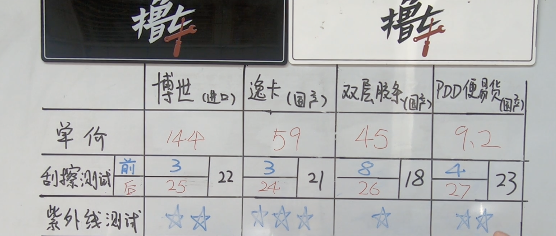 撸车 撸车
博世(进口) 逸卡(国产) 双层胶条(国产) PDD便易货(国产)
单价 144 59 45 9.2
刮擦测试 前 3 22 3 21 8 18 4 23
后 25 24 26 27
紫外线测试 ☆☆ ☆☆☆ ☆ ☆☆